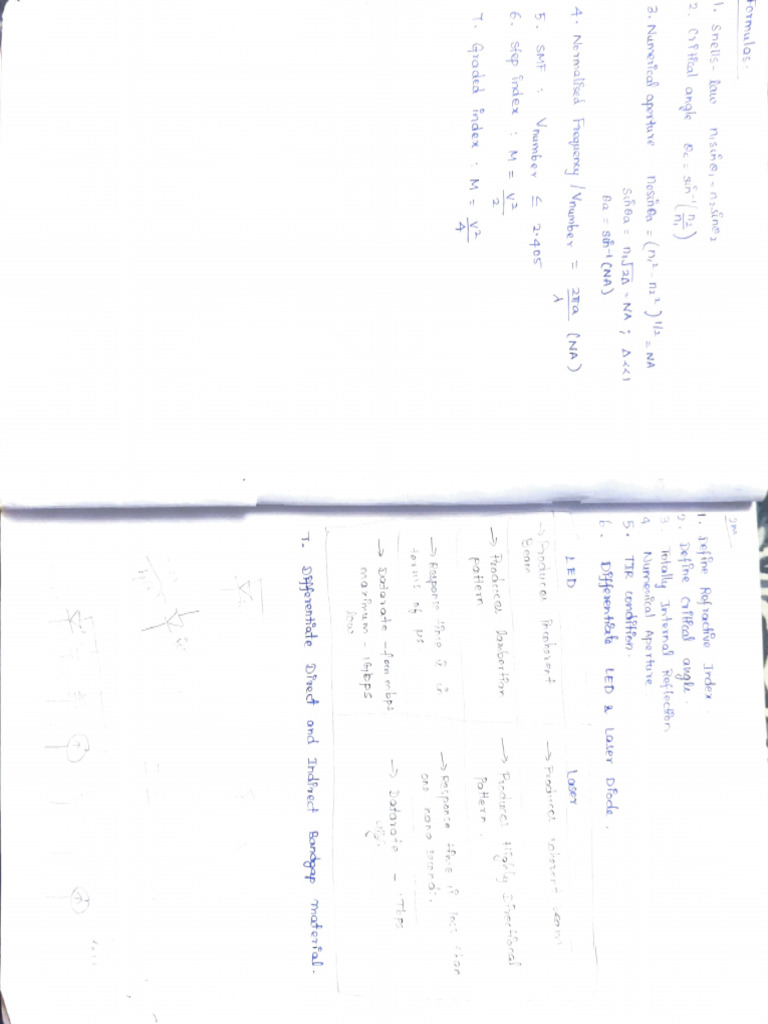 Formulas.
1. Snells- law n₁sinθ₁ = n₂sinθ₂
2. Critical angle θc = sin⁻¹(n₂/n₁)
3. Numerical aperture n₀sinθa = (n₁² - n₂²)^1/2 = NA
sinθa = n₁√2Δ = NA ; Δ<<1
θa = sin⁻¹(NA)
4. Normalised Frequency / Vnumber = 2πa/λ (NA)
5. SMF : Vnumber ≤ 2.405
6. Step index : M = V²/2
7. Graded index : M = V²/4
2M
1. Define Refractive Index.
2. Define Critical angle.
3. Totally Internal Reflection
4. Numerical Aperture
5. TIR condition.
6. Differentiate LED & Laser Diode.
LED Laser
→ Produces incoherent → Produces coherent beam
Beam
→ Produces lambertian → Produces Highly Directional
pattern pattern.
→ Response time is in → Response time is less than
terms of one nano second.
→ Datarate - from mbps → Datarate - Tbps
maximum - 1Gbps
low
7. Differentiate Direct and Indirect Bandgap material.